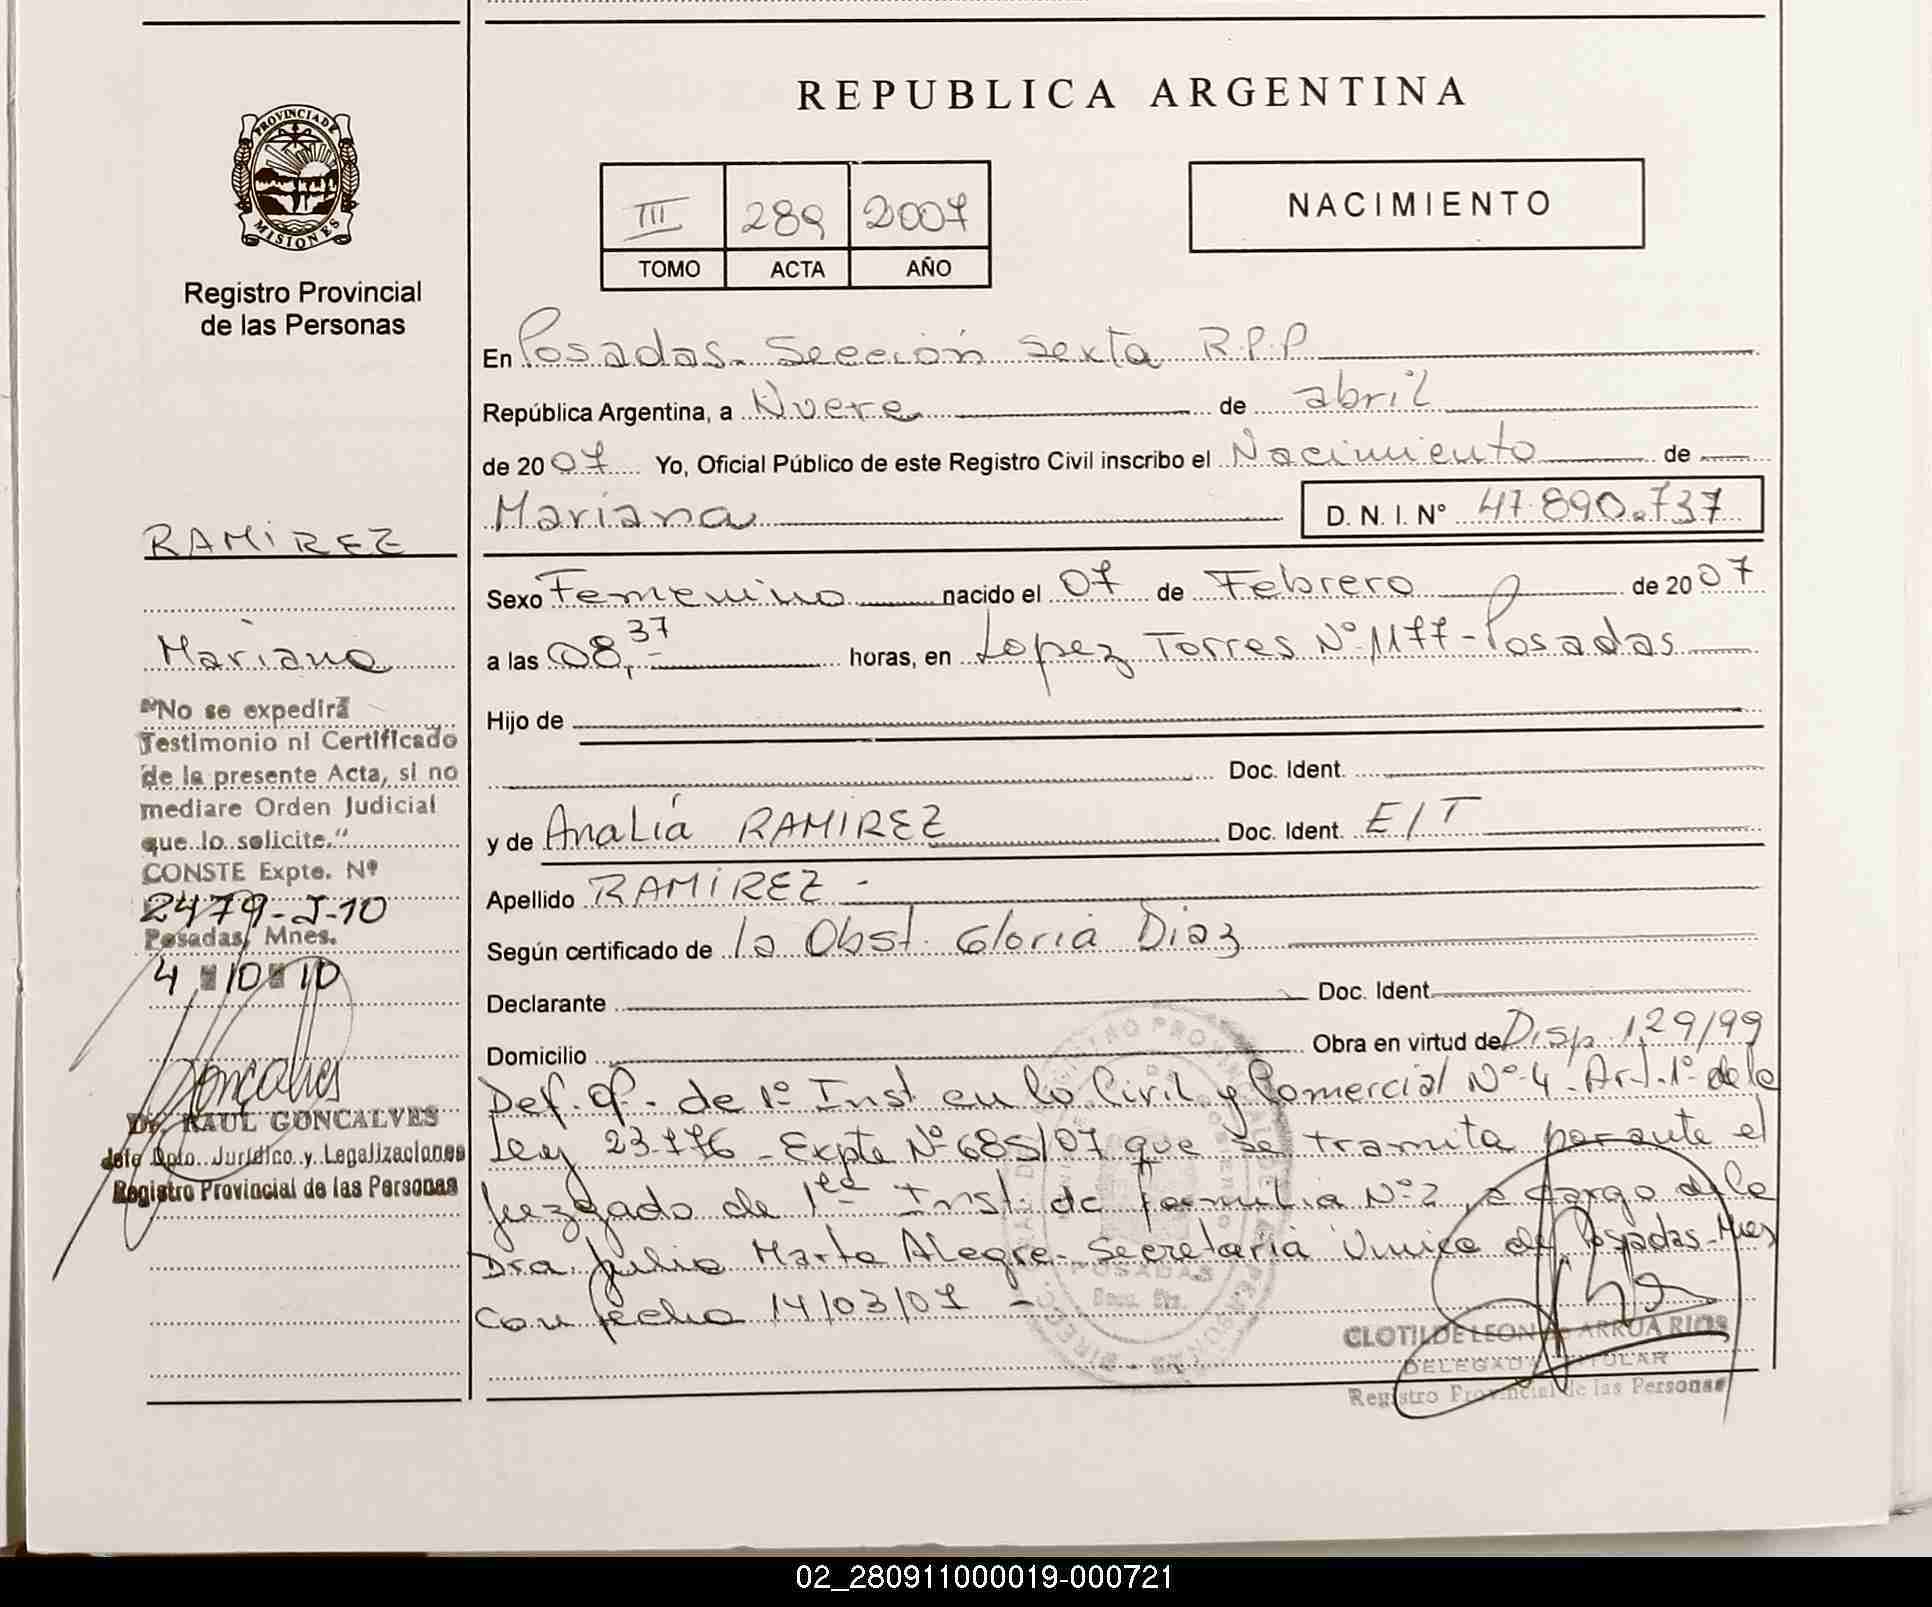 PROVINCIA DE
MISIONES
Registro Provincial
de las Personas
RAMIREZ
Mariana
"No se expedirá
Testimonio ni Certificado
de la presente Acta, si no
mediare Orden Judicial
que lo solicite."
CONSTE Expte. Nº
2479-J-10
Posadas, Mnes.
4 10 10
Goncalves
Dr. RAUL GONCALVES
Jefe Dpto. Jurídico y Legalizaciones
Registro Provincial de las Personas
REPUBLICA ARGENTINA
III 289 2007
TOMO ACTA AÑO
NACIMIENTO
En Posadas. Sección Sexta R.P.P
República Argentina, a Nueve de abril
de 2007 Yo, Oficial Público de este Registro Civil inscribo el Nacimiento de
Mariana D. N. I. Nº 47.890.737
Sexo Femenino nacido el 07 de Febrero de 2007
a las 08,37 horas, en Lopez Torres Nº 1177-Posadas
Hijo de
Doc. Ident.
y de Analía RAMIREZ Doc. Ident. E/T
Apellido RAMIREZ -
Según certificado de la Obst. Gloria Diaz
Declarante Doc. Ident.
Domicilio Obra en virtud de Disp. 129/99
Def. Of. de 1º Inst en lo Civil y Comercial Nº 4 - Art. 1º de la
Ley 23.776 - Expte Nº 685/07 que se tramita por ante el
Juzgado de 1era Inst. de familia Nº 2, a cargo de la
Dra. Julia Marta Alegre - Secretaria Unica de Posadas-Mnes
Con fecha 14/03/07 -
POSADAS
CLOTILDE LEON ARRUA RIOS
DELEGADA TITULAR
Registro Provincial de las Personas
02_280911000019-000721